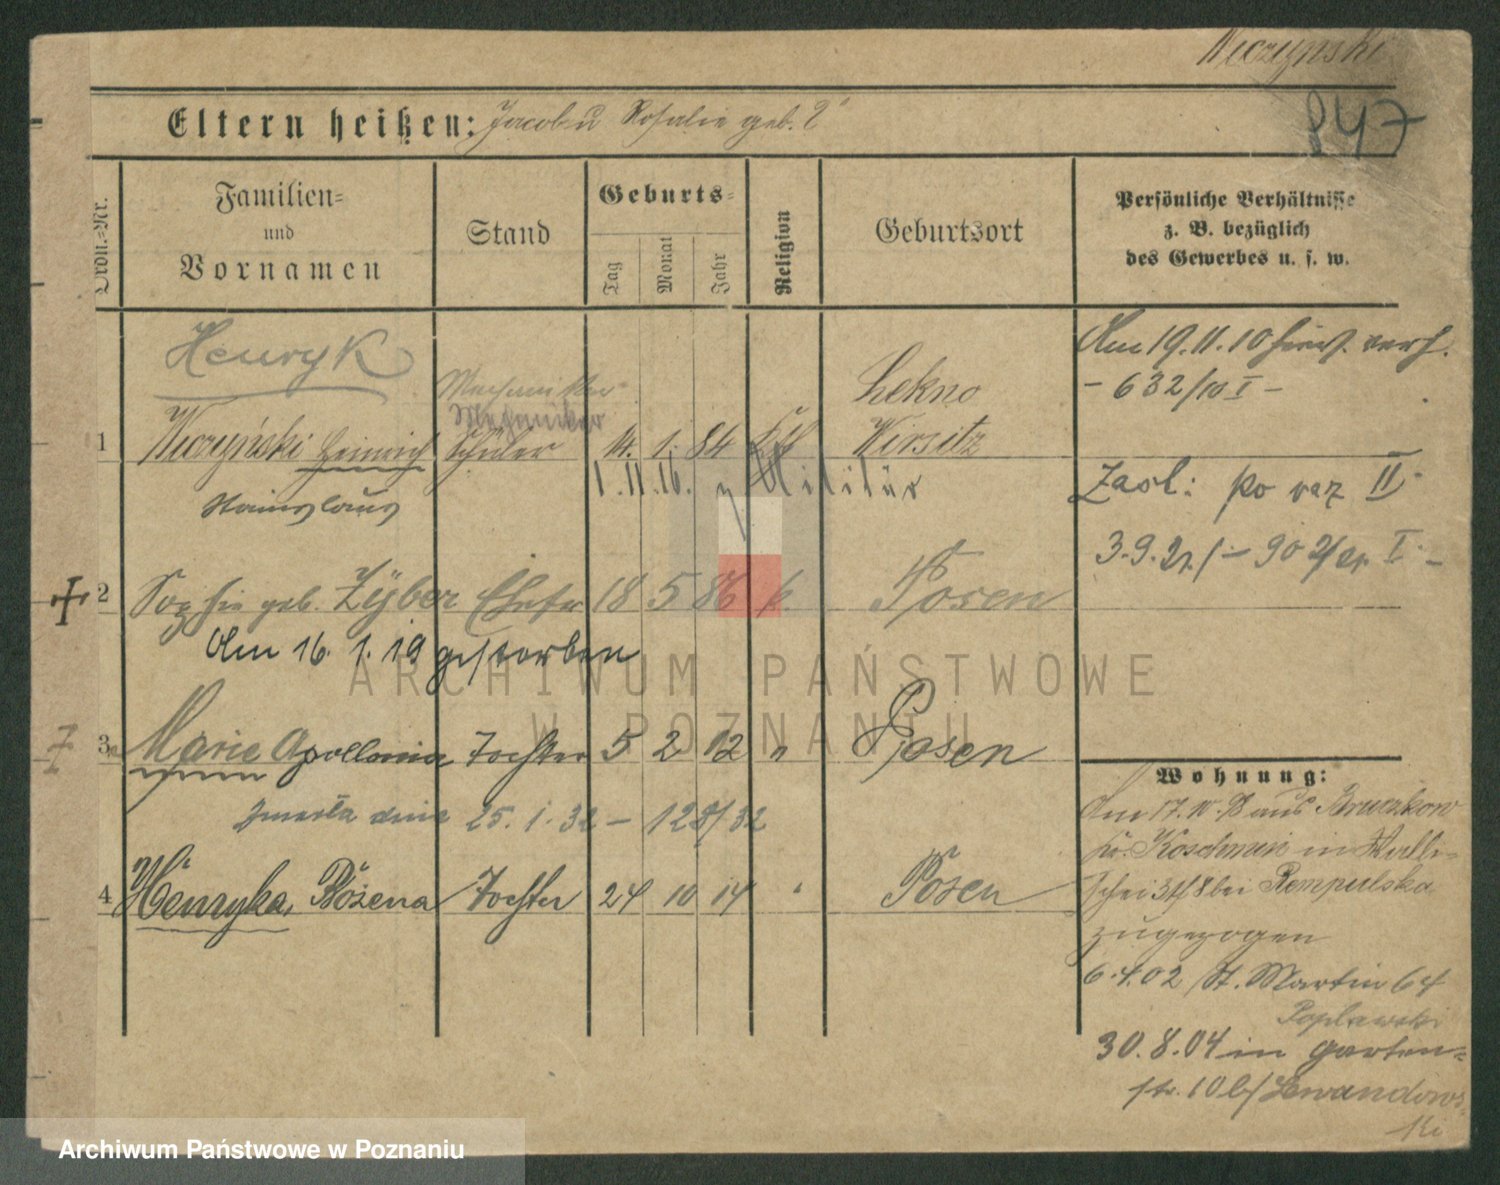 Niczynski
847
Eltern heißen: Jacob u Rosalie geb. ?
Ordn.=Nr.
Familien=
und
Vornamen
Stand
Geburts=
Tag
Monat
Jahr
Religion
Geburtsort
Persönliche Verhältnisse
z. B. bezüglich
des Gewerbes u. s. w.
Henryk
Mechaniker
Mechaniker
1 Niczyński Heinrich Schüler 14. 1. 84 Kth Lekno
Wirsitz
Stanislaus
1. 11. 16. z Militär
Am 19. 11. 10 verh.
- 632/10 I -
Zasl: po raz II
3. 9. 21. /:- 902/21. I -
2 Sophie geb. Zyber Ehefr 18 5 86 k. Posen
Am 16. 1. 19 gestorben
3 Marie Apollonia Tochter 5 2 12 " Posen
zmarła dnia 25. 1. 32 - 125/32
4 Henryka, Bożena Tochter 24 10 14 " Posen
Wohnung:
Am 17. aus Bruczkow
Kr. Koschmin in Walli-
schei bei Rempulska
zugezogen
6. 4. 02 St. Martin 64
Poplawski
30. 8. 04 in Garten=
str. 10 b/ Lewandows-
ki
ARCHIWUM PAŃSTWOWE
W POZNANIU
Archiwum Państwowe w Poznaniu